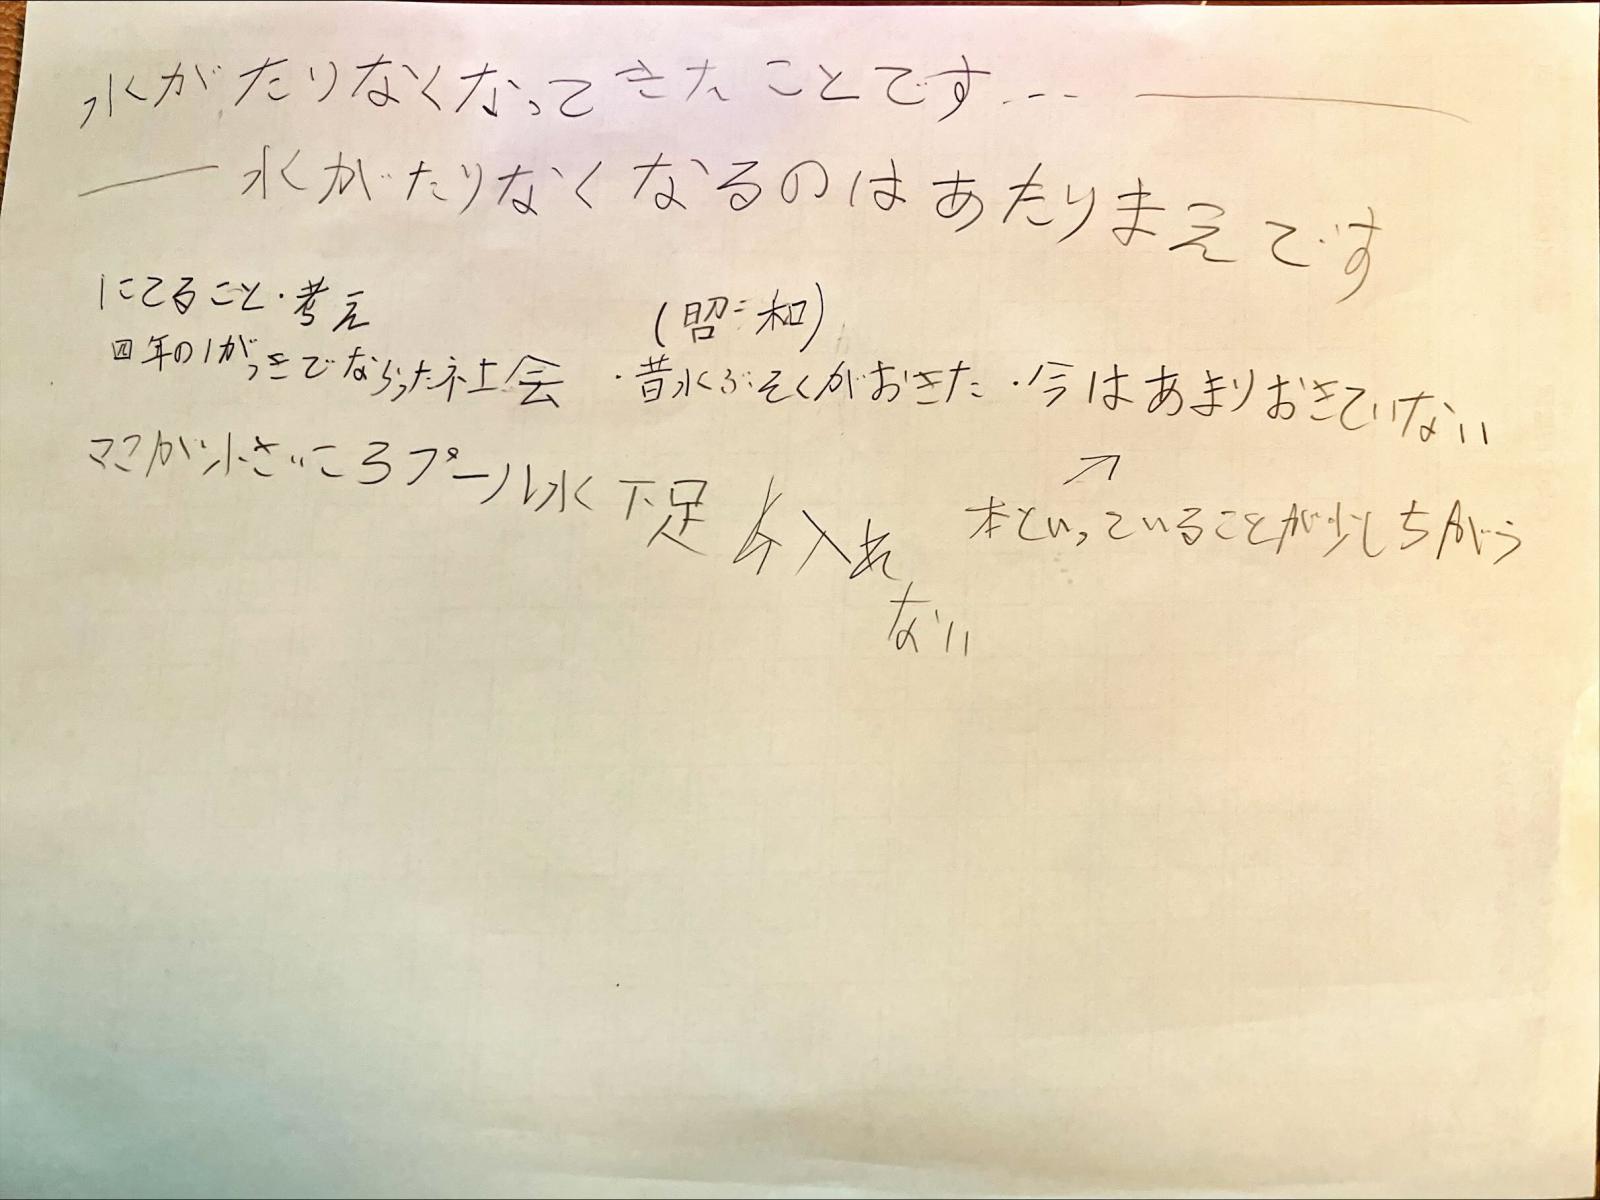 水がたりなくなってきたことです... ―
― 水がたりなくなるのはあたりまえです
にてること・考え
(昭和)
四年の1がっきでならった社会 ・昔水ぶそくがおきた ・今はあまりおきていない
ママが小さいころプール水不足 入れ
ない
↗
本といっていることが少しちがう